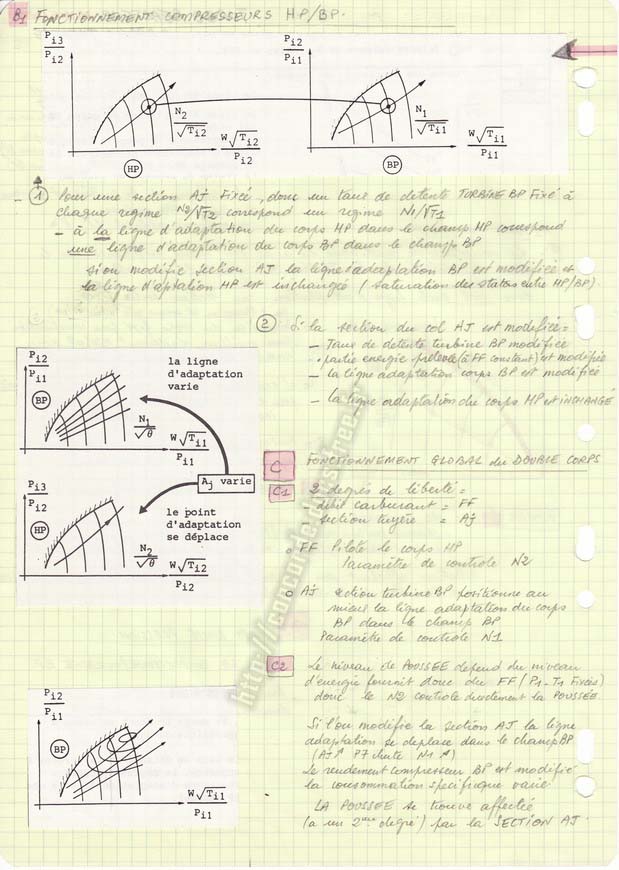 B1 FONCTIONNEMENT COMPRESSEURS HP/BP.
Pi3
Pi2
N2
√Ti2
W√Ti2
Pi2
HP
Pi2
Pi1
N1
√Ti1
W√Ti1
Pi1
BP
1 Pour une section Aj Fixée, donc un taux de detente TURBINE BP Fixé à
chaque regime N2/√T2 correspond un regime N1/√T1
- à la ligne d'adaptation du corps HP dans le champ HP correspond
une ligne d'adaptation du corps BP dans le champ BP
si on modifie section AJ la ligne d'adaptation BP est modifiée et
la ligne d'aptation HP est inchangée (saturation des stators entre HP/BP)
2 Si la section du col AJ est modifiée =
- Taux de detente turbine BP modifiée
• partie energie prelevée (à FF constant) est modifiée
- la ligne adaptation corps BP est modifiée
- la ligne adaptation du corps HP est INCHANGÉ
Pi2
Pi1
BP
la ligne
d'adaptation
varie
N1
√θ
W√Ti1
Pi1
Aj varie
Pi3
Pi2
HP
le point
d'adaptation
se déplace
N2
√θ
W√Ti2
Pi2
C FONCTIONNEMENT GLOBAL du DOUBLE CORPS
C1 2 degrés de liberté =
debit carburant = FF
section tuyère = Aj
o FF Pilote le corps HP
Paramètre de controle N2
o Aj section turbine BP positionne au
mieux la ligne adaptation du corps
BP dans le champ BP
Paramètre de controle N1
C2 Le niveau de POUSSEE depend du niveau
d'energie fournit donc du FF (P1-T1 Fixés)
donc le N2 controle directement la POUSSÉE
Si l'on modifie la section AJ la ligne
adaptation se deplace dans le champ BP
(AJ↑ P7 chute N1↑)
Le rendement compresseur BP est modifié
la consommation spécifique varie
LA POUSSEE se trouve affectée
(a un 2eme degré) par la SECTION AJ.
Pi2
Pi1
BP
W√Ti1
Pi1